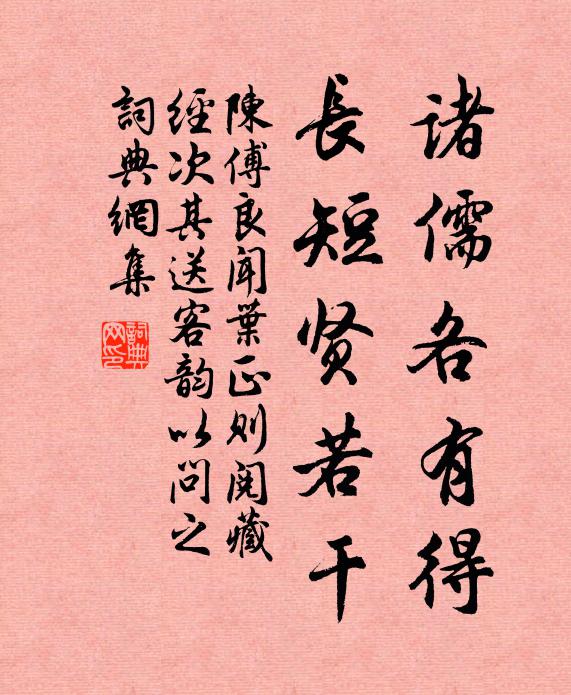 诸儒各有得
長短贤若干
陳傅良闻葉正则阅藏
經次其送客韵以问之
詞典網集
詞典
网印